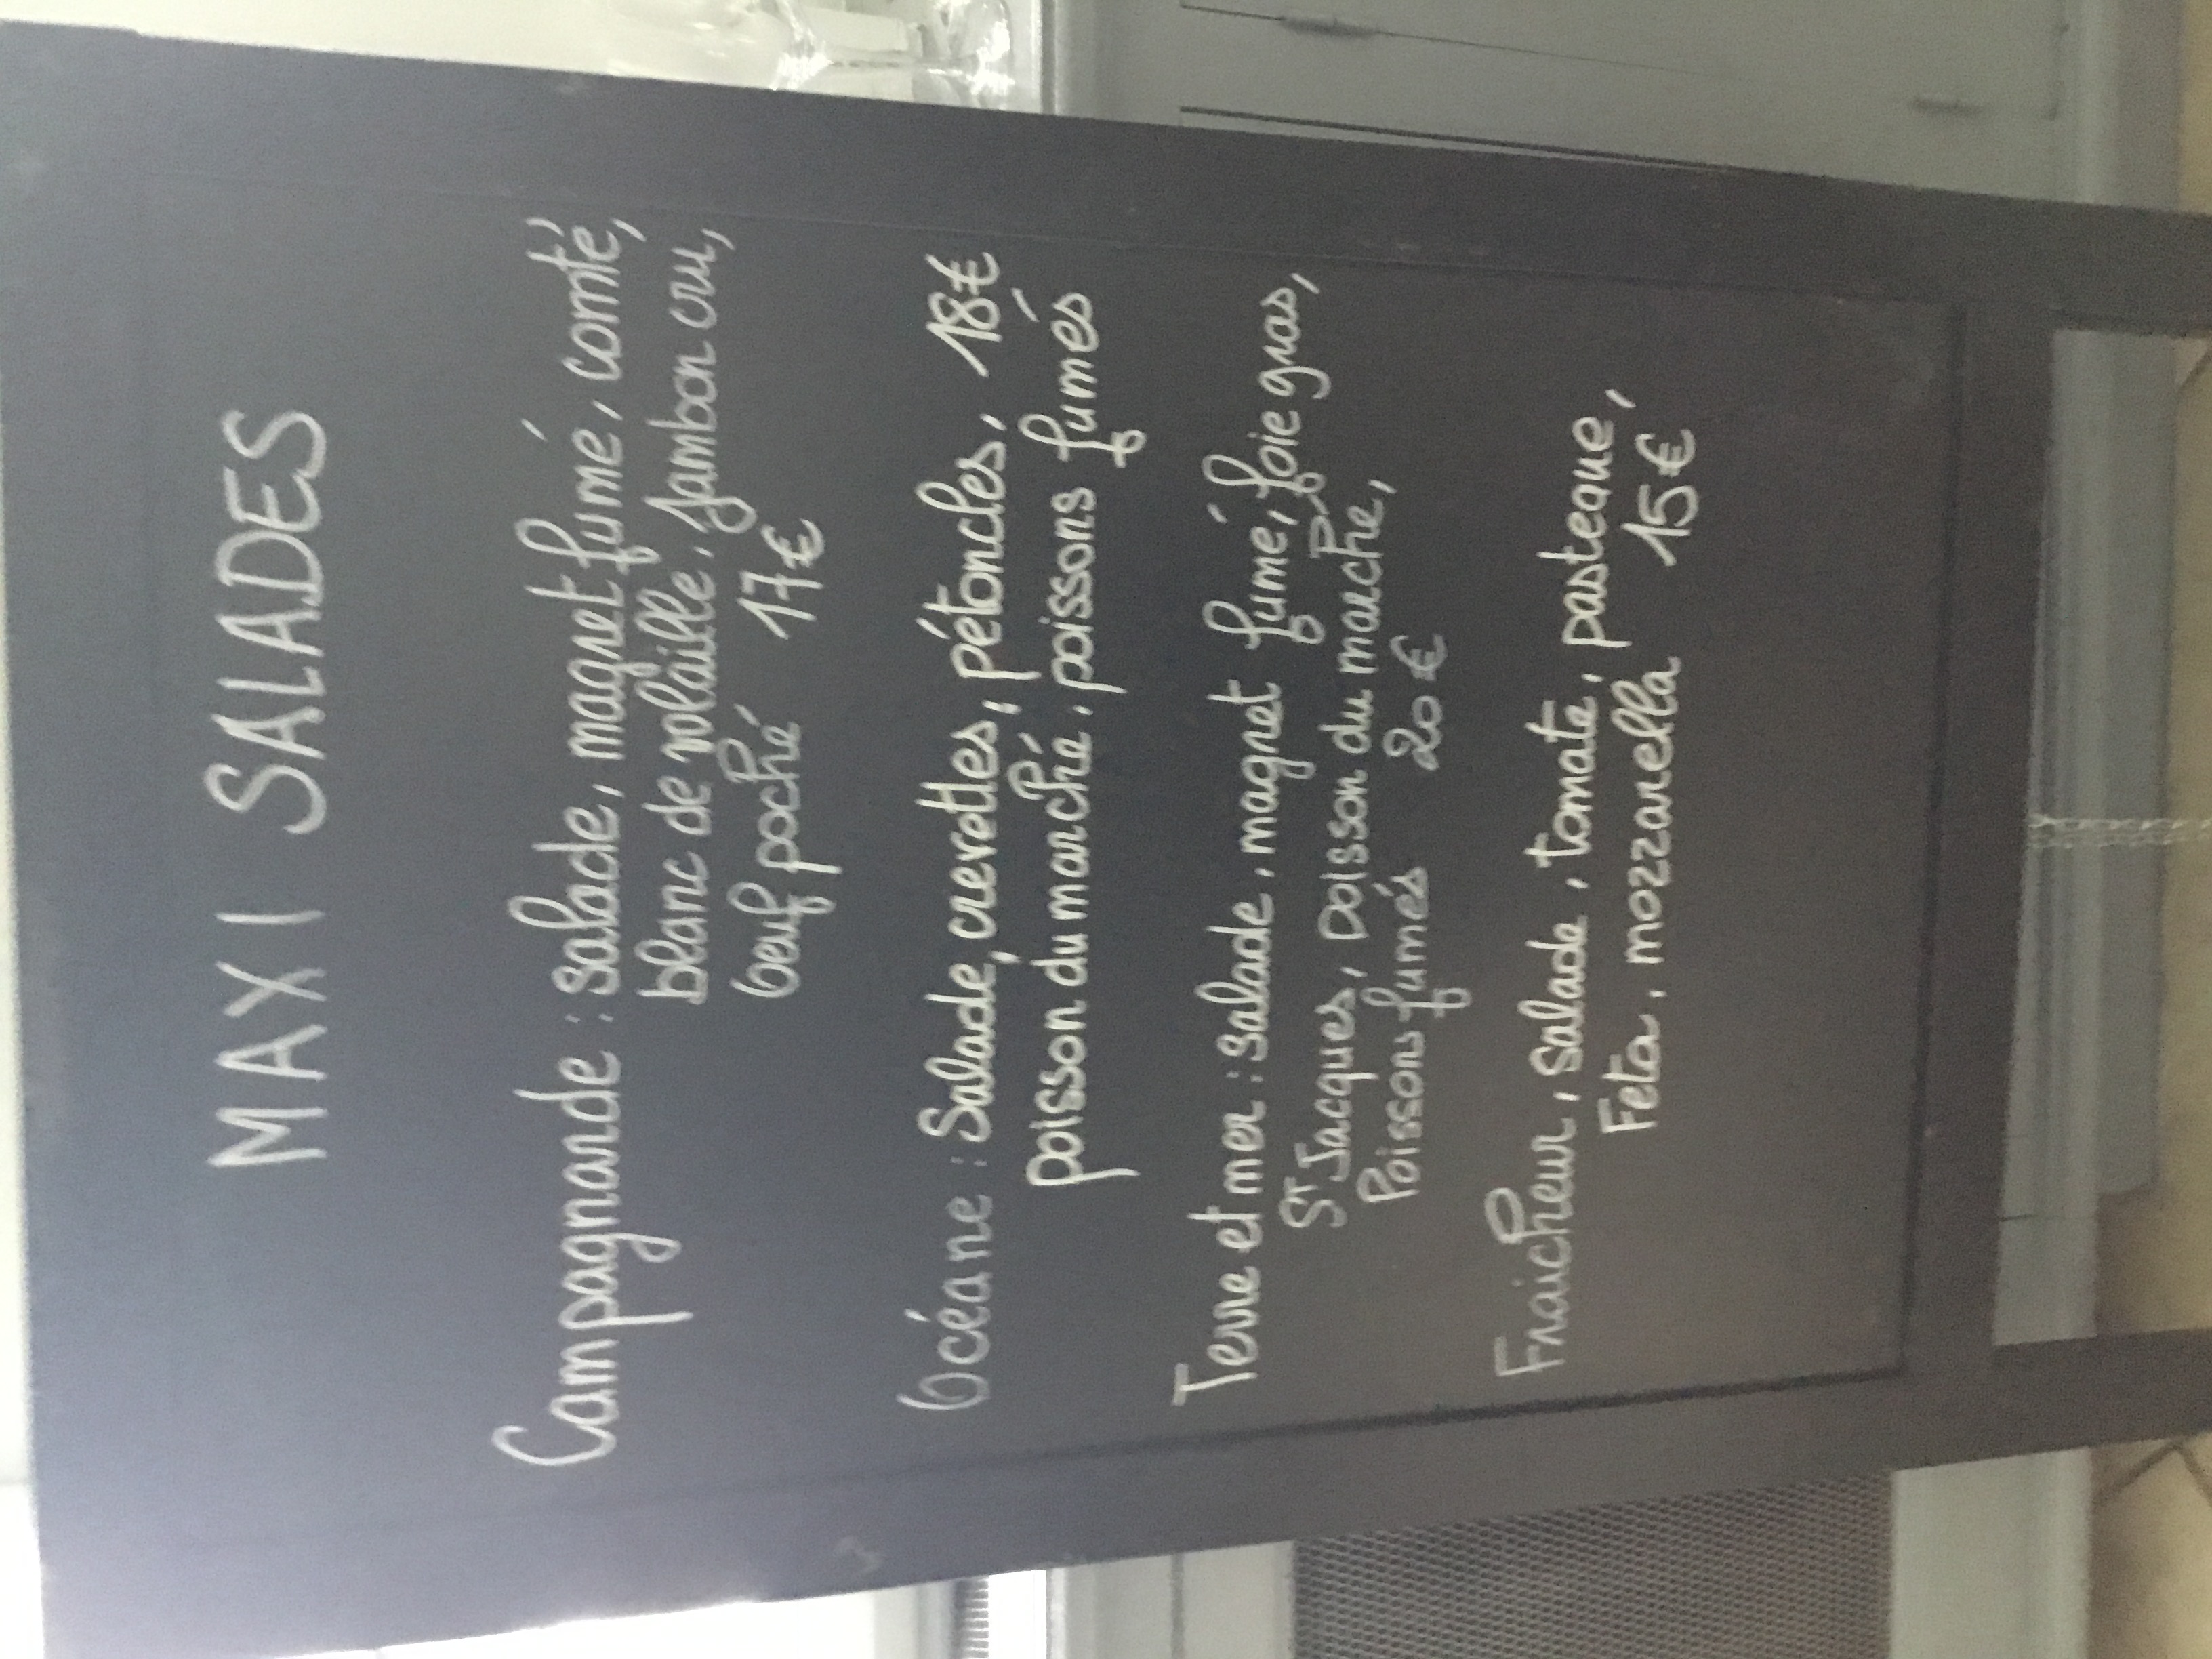 MAXI SALADES
Campagnarde : salade, magret fumé, comté,
blanc de volaille, jambon cru,
oeuf poché 17€
Océane : Salade, crevettes, pétoncles, 18€
poisson du marché, poissons fumés
Terre et mer : salade, magret fumé, foie gras,
ST Jacques, poisson du marché,
Poissons fumés 20€
Fraicheur, salade, tomate, pasteque,
Feta, mozzarella 15€